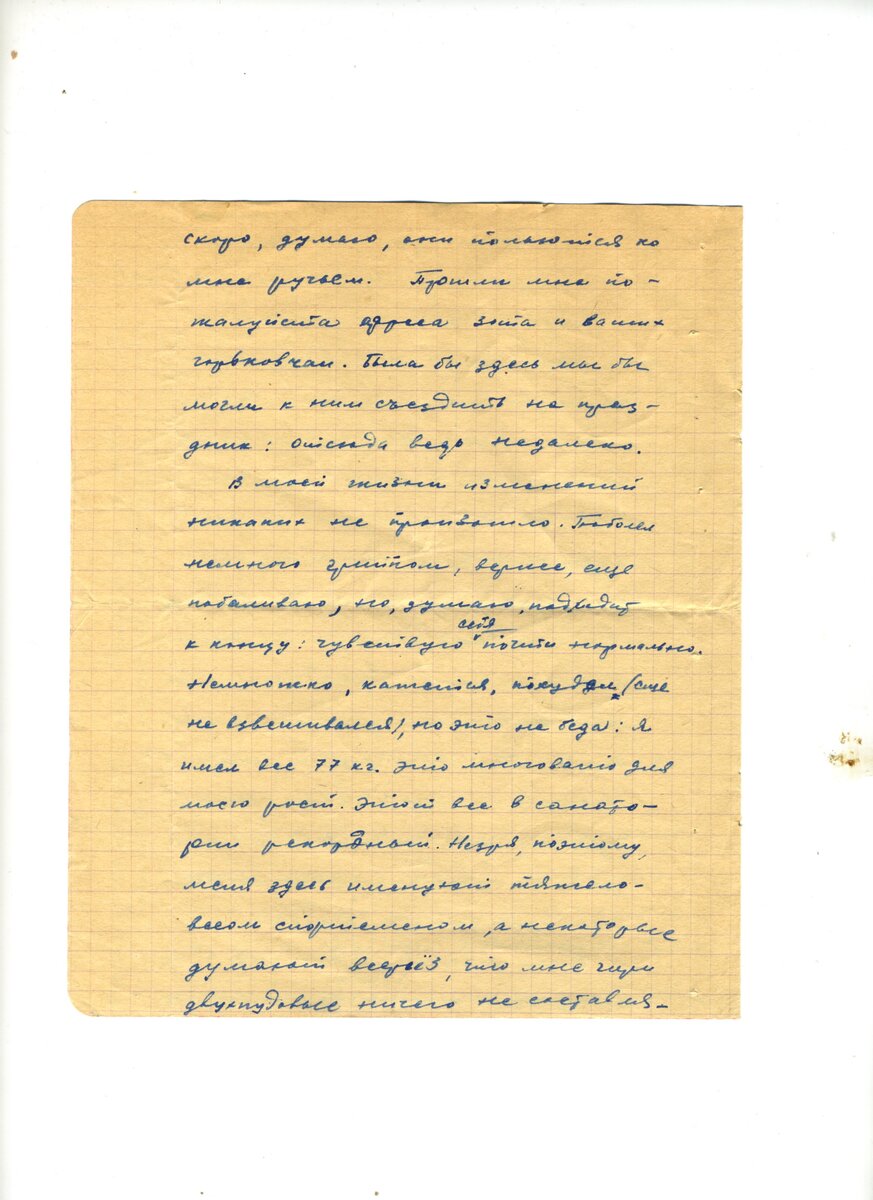 скоро, думаю, они польются ко
мне ручьем. Пришли мне по-
жалуйста адреса зятя и ваших
горьковчан. Была бы здесь мы бы
могли к ним съездить на праз-
дник: отсюда ведь недалеко.
В моей жизни изменений
никаких не произошло. Поболел
немного гриппом, вернее, еще
побаливаю, но, думаю, подходит
к концу: чувствую себя почти нормально.
Немножко, кажется, похудел (еще
не взвешивался), но это не беда: я
имел вес 77 кг. это многовато для
моего роста. Этот вес в санато-
рии рекордный. Незря, поэтому,
меня здесь именуют тяжело-
весом спортсменом, а некоторые
думают всерьёз, что мне гири
двухпудовые ничего не составля-